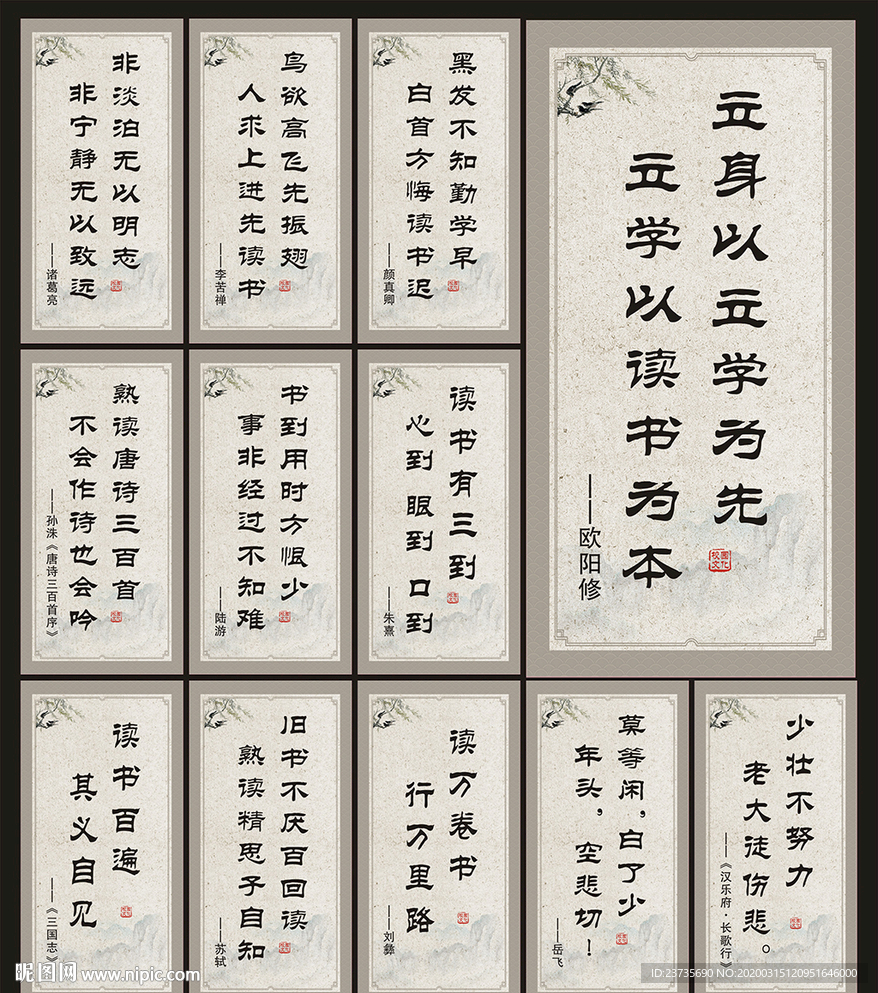 非淡泊无以明志
非宁静无以致远
——诸葛亮
鸟欲高飞先振翅
人求上进先读书
——李苦禅
黑发不知勤学早
白首方悔读书迟
——颜真卿
立身以立学为先
立学以读书为本
——欧阳修
校园文化
熟读唐诗三百首
不会作诗也会吟
——孙洙《唐诗三百首序》
书到用时方恨少
事非经过不知难
——陆游
读书有三到
心到 眼到 口到
——朱熹
读书百遍
其义自见
——《三国志》
旧书不厌百回读
熟读精思子自知
——苏轼
读万卷书
行万里路
——刘彝
莫等闲，白了少
年头，空悲切！
——岳飞
少壮不努力
老大徒伤悲。
——《汉乐府·长歌行》
昵图网 www.nipic.com
ID:23735690 NO:20200315120951646000